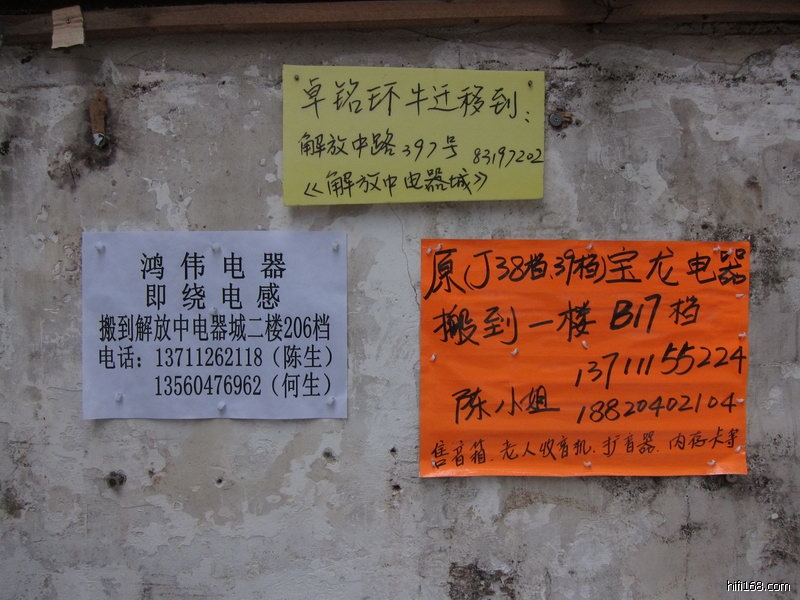 卓铭环牛迁移到:
解放中路397号 83197202
《解放中电器城》
鸿伟电器
即绕电感
搬到解放中电器城二楼206档
电话：13711262118（陈生）
13560476962（何生）
原(J38档、39档)宝龙电器
搬到一楼B17档
13711155224
陈小姐 18820402104
售音箱、老人收音机、扩音器、内存卡等
hifi168.com